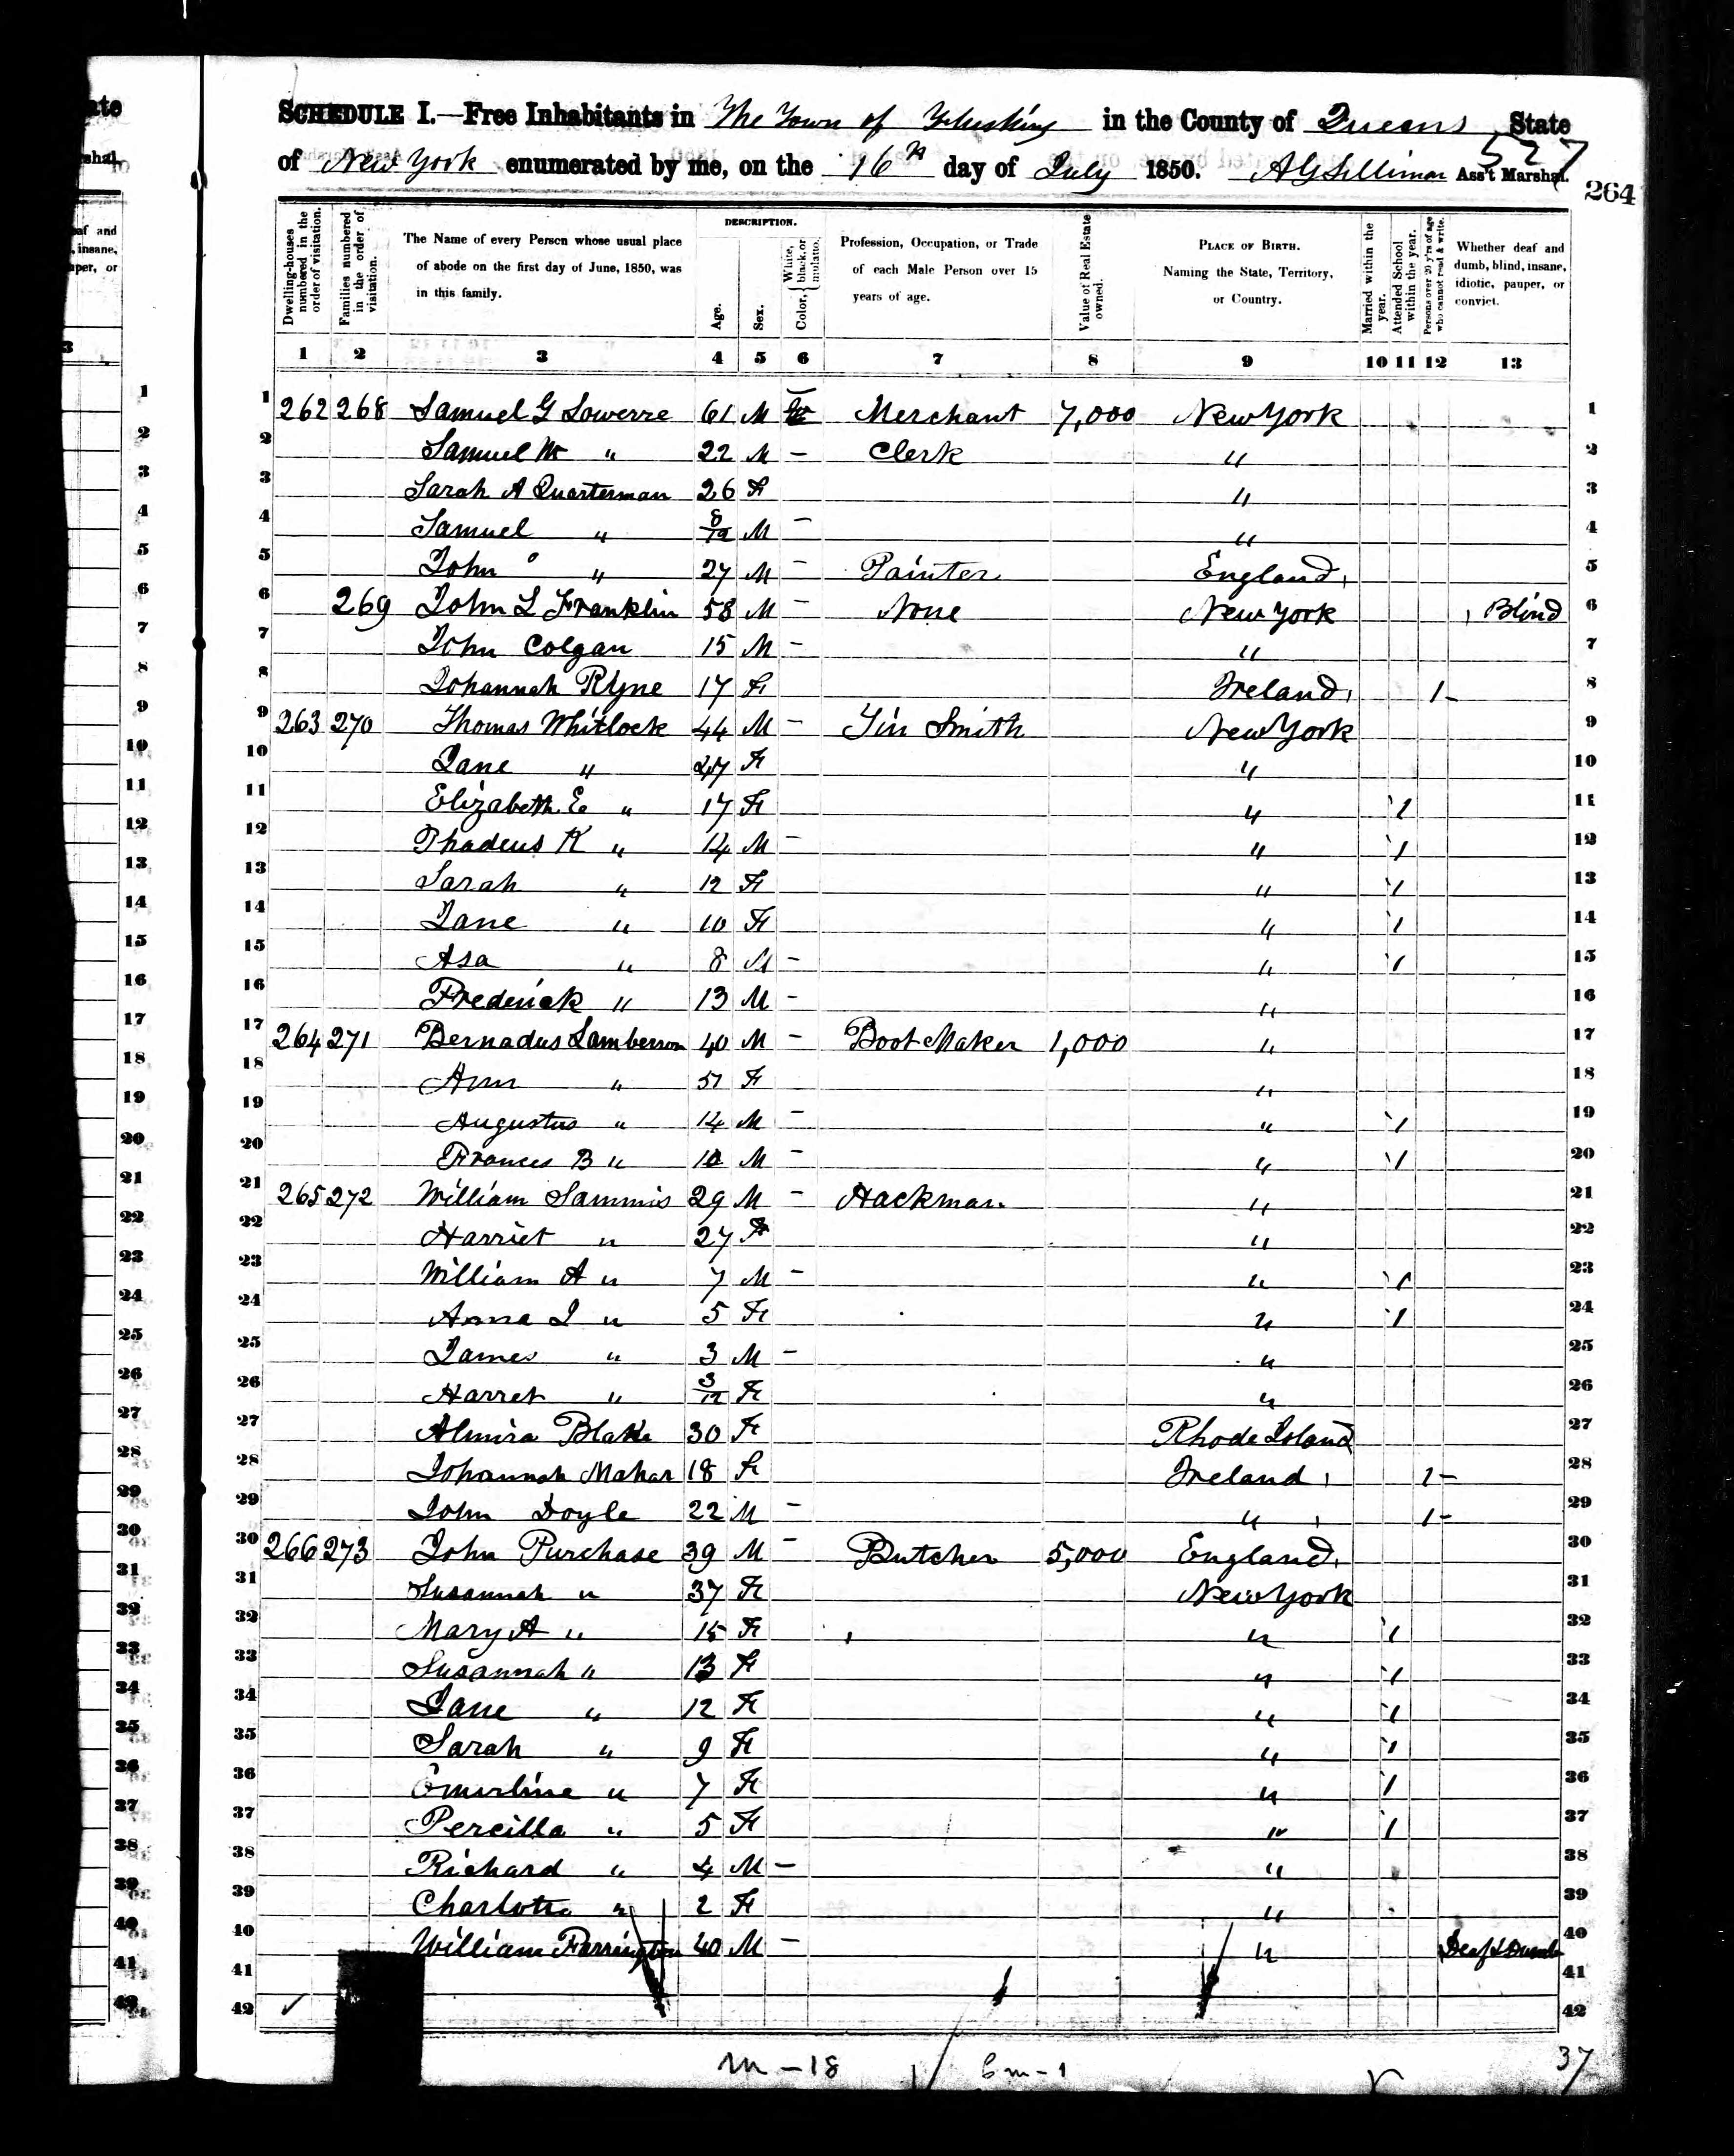 SCHEDULE I.—Free Inhabitants in The Town of Flushing in the County of Queens State
of New York enumerated by me, on the 16th day of July 1850. A G Silliman Ass't Marshal.
527
264
Dwelling-houses numbered in the order of visitation.
Families numbered in the order of visitation.
The Name of every Person whose usual place of abode on the first day of June, 1850, was in this family.
DESCRIPTION.
Age.
Sex.
Color, { White, black, or mulatto.
Profession, Occupation, or Trade of each Male Person over 15 years of age.
Value of Real Estate owned.
PLACE OF BIRTH. Naming the State, Territory, or Country.
Married within the year.
Attended School within the year.
Persons over 20 y'rs of age who cannot read & write.
Whether deaf and dumb, blind, insane, idiotic, pauper, or convict.
1 2 3 4 5 6 7 8 9 10 11 12 13
1 262 268 Samuel G Lowerre 61 M W Merchant 7,000 New York 1
2 Samuel W " 22 M – Clerk " 2
3 Sarah A Quarterman 26 F " 3
4 Samuel " 8/12 M – " 4
5 John " 27 M – Painter England 5
6 269 John L Franklin 58 M – None New York Blind 6
7 John Colgan 15 M – " 7
8 Johannah Ryne 17 F Ireland 1 8
9 263 270 Thomas Whitlock 44 M – Tin Smith New York 9
10 Jane " 47 F " 10
11 Elizabeth E " 17 F " 1 11
12 Thadeus K " 14 M – " 1 12
13 Sarah " 12 F " 1 13
14 Jane " 10 F " 1 14
15 Asa " 8 M – " 1 15
16 Frederick " 13 M – " 16
17 264 271 Bernadus Lamberson 40 M – Boot Maker 1,000 " 17
18 Ann " 51 F " 18
19 Augustus " 14 M – " 1 19
20 Frances B " 10 M – " 1 20
21 265 272 William Sammis 29 M – Hackman " 21
22 Harriet " 27 F " 22
23 William A " 7 M – " 1 23
24 Anna J " 5 F " 1 24
25 James " 3 M – " 25
26 Harret " 3/12 F " 26
27 Almira Blake 30 F Rhode Island 27
28 Johannah Mahar 18 F Ireland 1 28
29 John Doyle 22 M – " 1 29
30 266 273 John Purchase 39 M – Butcher 5,000 England 30
31 Susannah " 37 F New York 31
32 Mary A " 15 F " 1 32
33 Susannah " 13 F " 1 33
34 Jane " 12 F " 1 34
35 Sarah " 9 F " 1 35
36 Emerline " 7 F " 1 36
37 Percilla " 5 F " 1 37
38 Richard " 4 M – " 38
39 Charlotte " 2 F " 39
40 William Farrington 40 M – " Deaf & Dumb 40
41 41
42 42
m – 18 6 m – 1 37